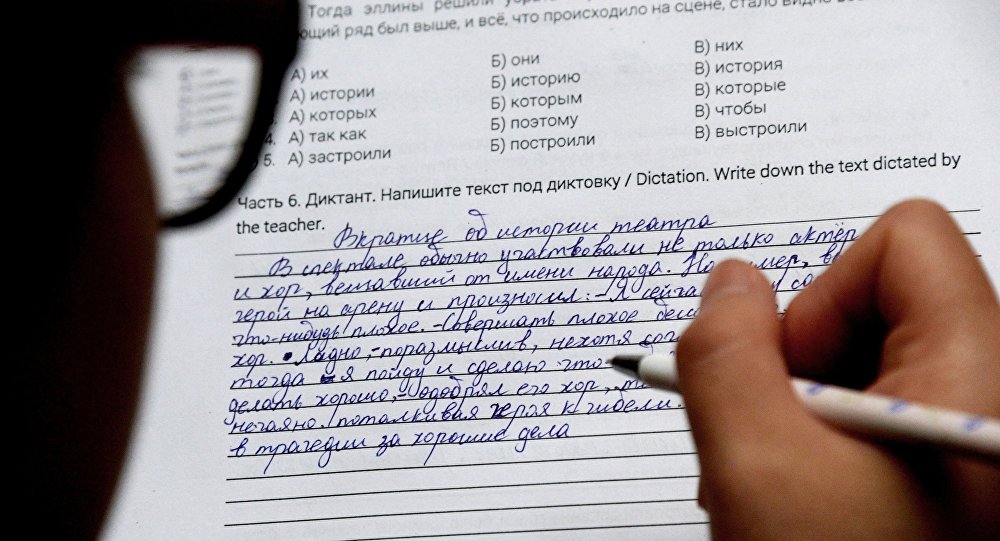 Тогда эллины решили
ющий ряд был выше, и всё, что происходило на сцене, стало видно
А) их Б) они В) них
А) истории Б) историю В) история
А) которых Б) которым В) которые
4. А) так как Б) поэтому В) чтобы
5. А) застроили Б) построили В) выстроили
Часть 6. Диктант. Напишите текст под диктовку / Dictation. Write down the text dictated by
the teacher.
Вкратце об истории театра
В спектакле обычно участвовали не только актёр
и хор, вещавший от имени народа.
герой на арену и произносил: – Я сейча
что-нибудь плохое. – Совершать плохое
хор. Ладно, – поразмыслив, нехотя
тогда – я пойду и сделаю что-
делать хорошо, – одобрял его хор,
нечаяно поталкивая героя к гибели.
в трагедии за хорошие дела